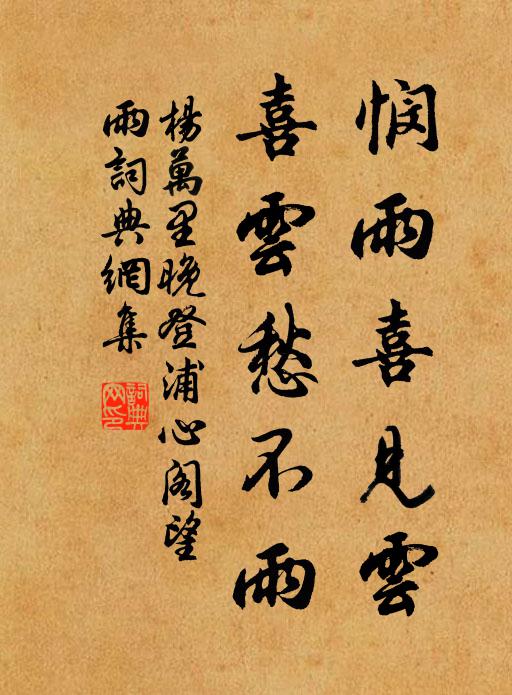 悯雨喜見雲
喜雲愁不雨
楊萬里晚登浦心阁望
雨詞典網集
詞典
网印